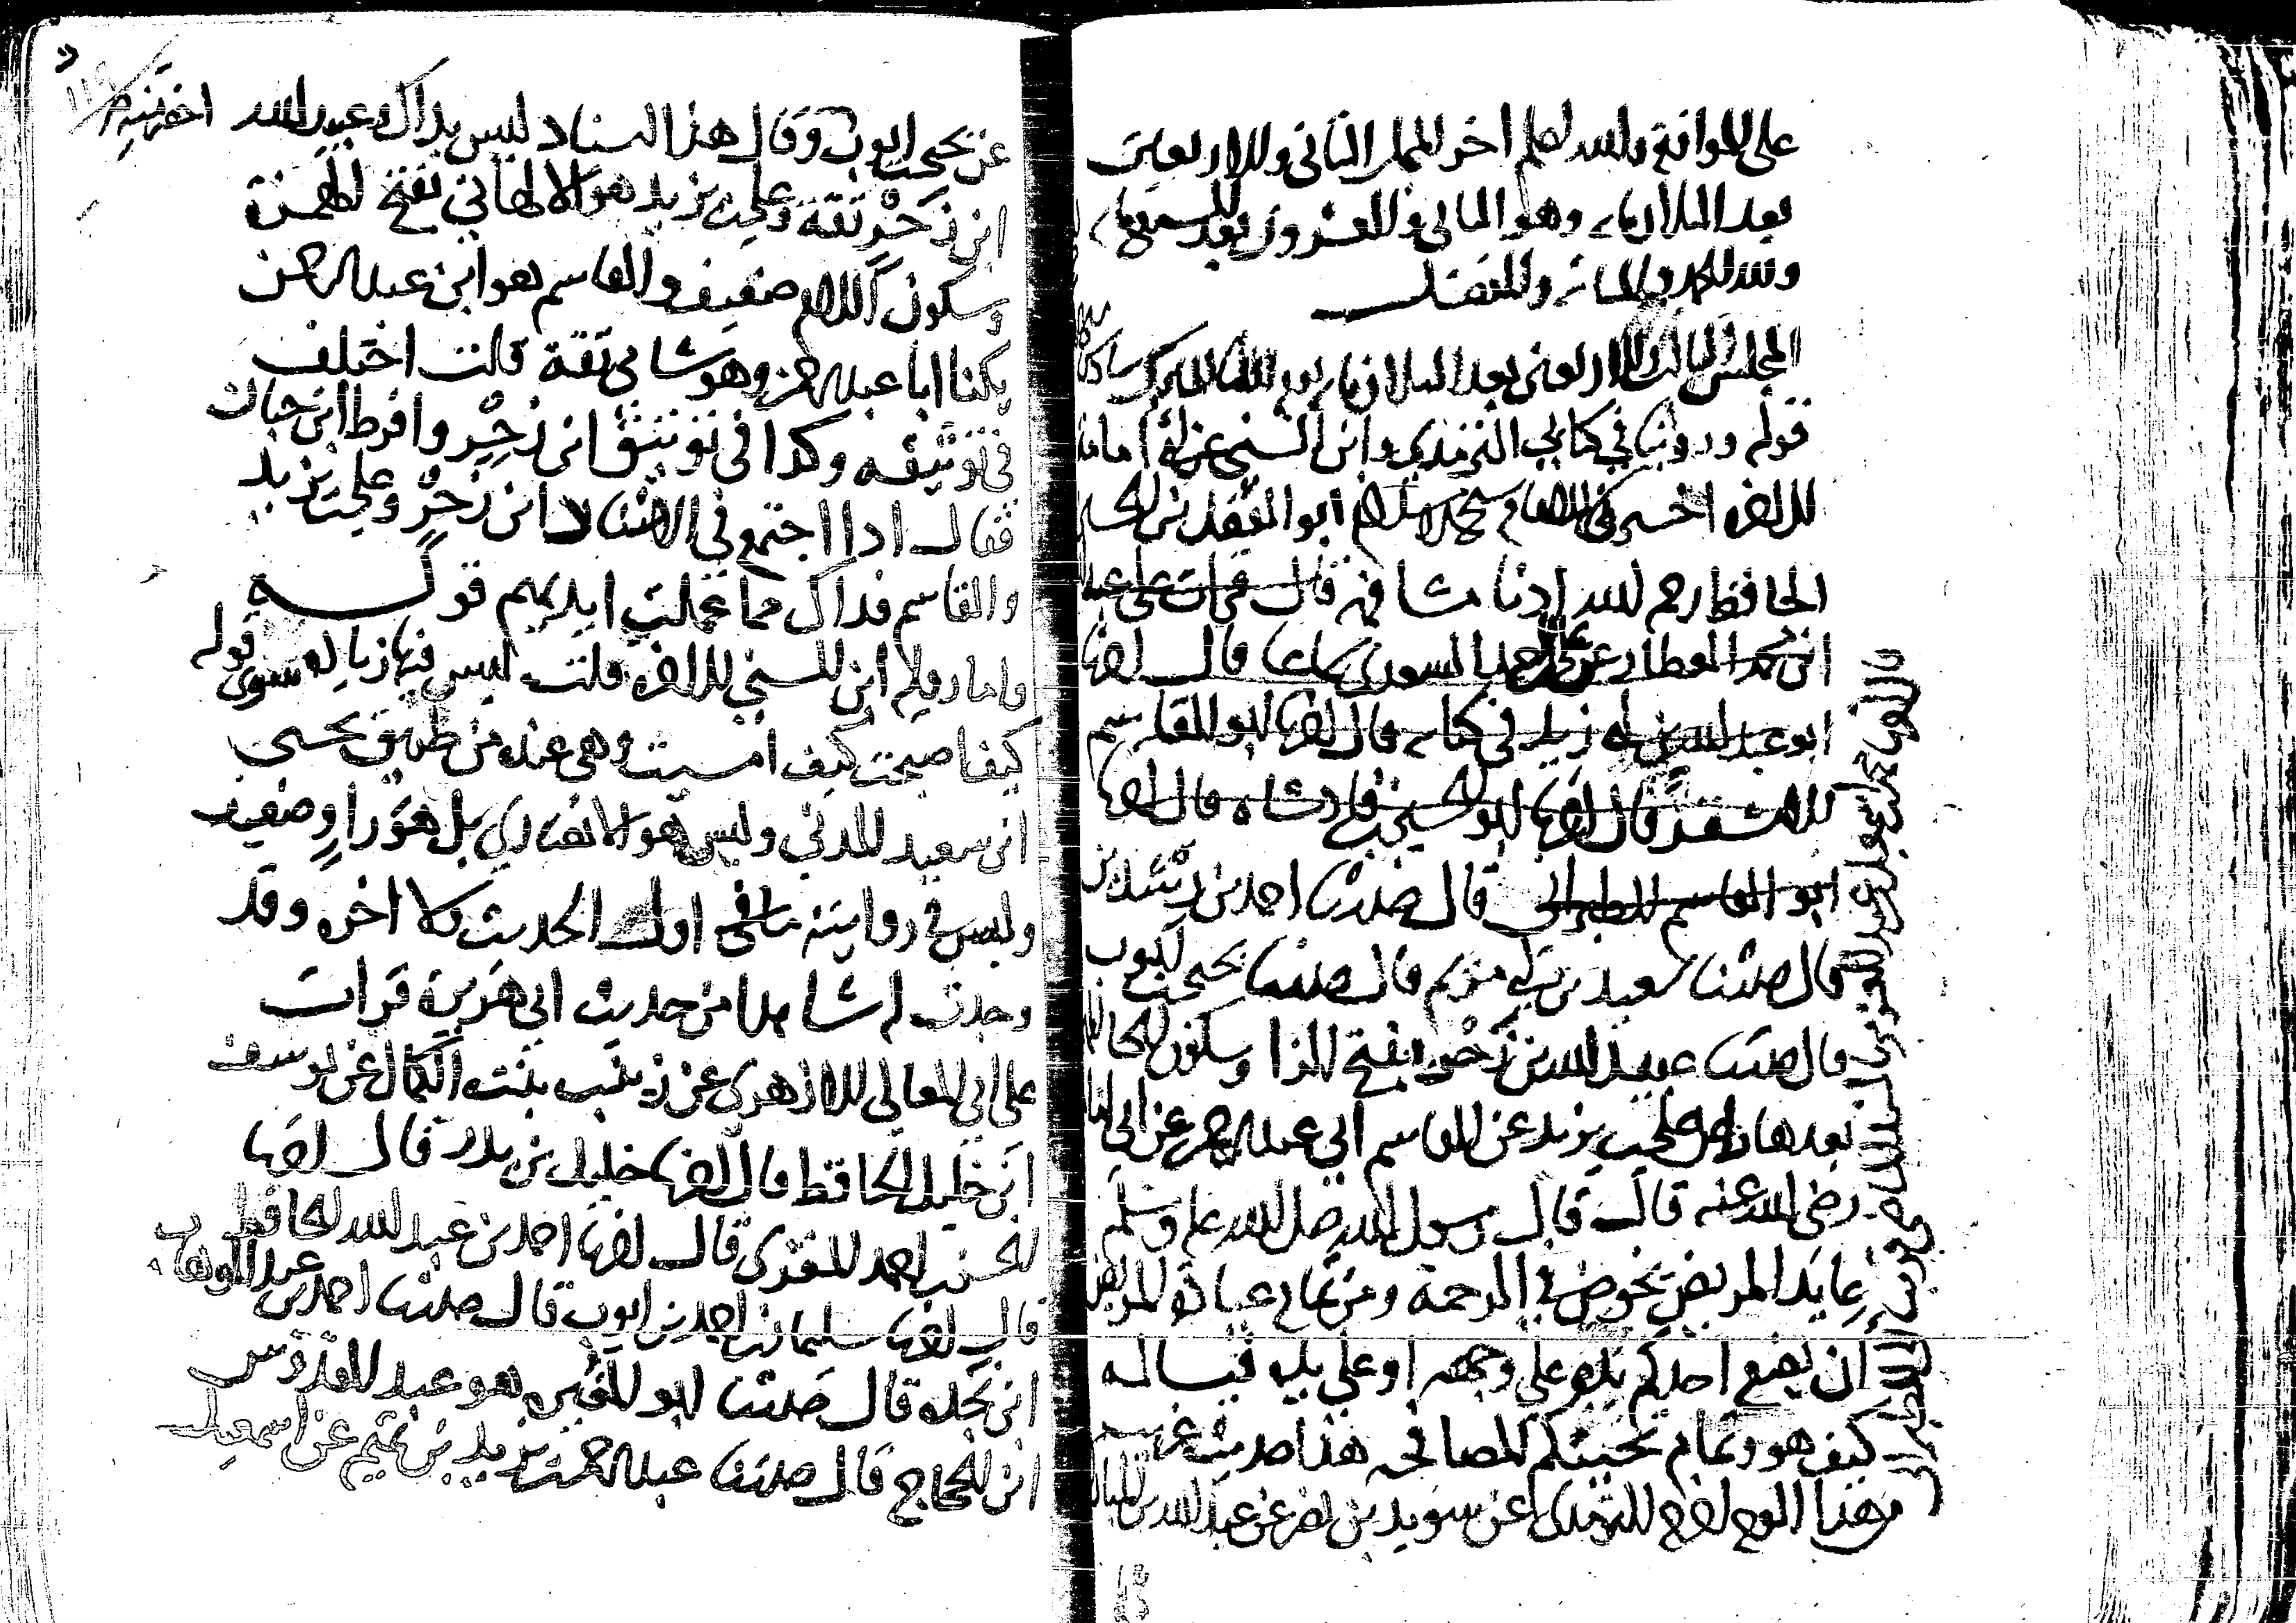 على الموافقة والله اعلم اخر المجلس الثاني والاربعين
بعد الثلاثمايه وهو الماتي والعشرون بعد السبعمايه
ولله الحمد والمنه والفضل
المجلس الثالث والاربعين بعد الثلاثمايه
قوله وروينا في كتابي الترمذي وابن السني عن ابي امامة
الى اخره اخبرني الامام شيخ الاسلام ابو الفضل بن الحسين
الحافظ رحمه الله اذنا مشافهة قال قرات على عبد
ابن محمد العطار عن علي بن احمد السعدي سماعا قال اخبرنا
ابو عبد الله بن ابي زيد في كتابه قال اخبرنا ابو القاسم
الاشقر قال اخبرنا ابو الحسين بن فادشاه قال اخبرنا
ابو القاسم الطبراني قال حدثنا احمد بن رشدين
قال حدثنا سعيد بن ابي مريم قال حدثنا يحيى بن ايوب
قال حدثنا عبيد الله بن زحر بفتح الزا وسكون الحا
بعدها را عن علي بن يزيد عن القاسم ابي عبد الرحمن عن ابي اما
رضي الله عنه قال قال رسول الله صلى الله عليه وسلم
عايد المريض يخوض في الرحمة ومن تمام عيادة المريض
ان يضع احدكم يده على وجهه او على يده فيساله
كيف هو وتمام تحيتكم المصافحه هذا حديث غريب
بهذا الوجه اخرجه الترمذي عن سويد بن نصر عن عبد الله بن المبارك
عن يحيى بن ايوب وقال هذا اسناد ليس بذاك وعبيد الله
ابن زحر ثقة وعلي بن يزيد هو الالهاني بفتح الهمزة
وسكون اللام ضعيف والقاسم هو ابن عبد الرحمن
يكنا ابا عبد الرحمن وهو شامي ثقة قلت اختلف
في توثيقه وكذا في توثيق ابن زحر وافرط ابن حبان
فقال اذا اجتمع في الاسناد ابن زحر وعلي بن يزيد
والقاسم فذاك مما عملت ايديهم قوله
واما رواية ابن السني الى اخره قلت ليس فيها زياده سوى قوله
كيف اصبحت كيف امسيت وهي عنده من طريق يحيى
ابن سعيد المدني وليس هو الانصاري بل هو راو ضعيف
وليس في روايته ما في اول الحديث ولا اخره وقد
وجدت له شاهدا من حديث ابي هريرة قرات
على ابي المعالي الازهري عن زينب بنت الكمال عن يوسف
ابن خليل الحافظ قال اخبرنا خليل بن بدر قال اخبرنا
الحسن بن احمد المقري قال اخبرنا احمد بن عبد الله الحافظ
قال اخبرنا سليمان بن احمد بن ايوب قال حدثنا احمد بن عبد الوهاب
ابن نجده قال حدثنا ابو المغيره هو عبد القدوس
ابن الحجاج قال حدثنا عبد الرحمن بن يزيد بن تميم عن اسمعيل